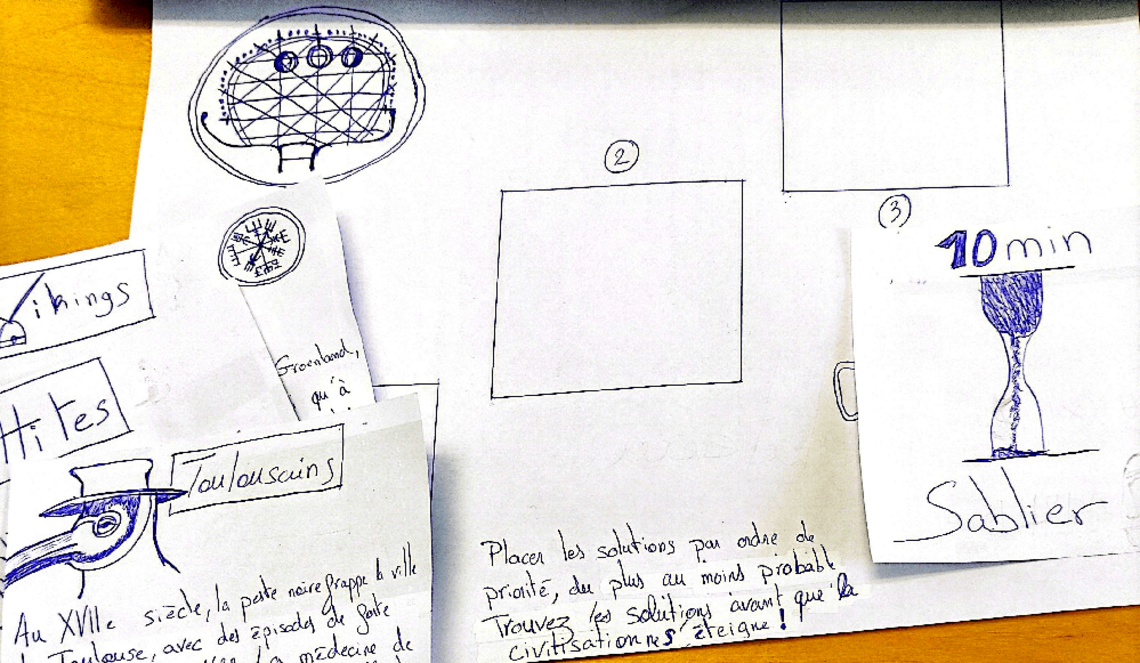 2
3
10 min
Sablier
ikings
Hites
Groenland,
qu'à
Toulousains
Au XVIIe siècle, la peste noire frappe la ville
Toulouse, avec des épisodes de
la médecine de
Placer les solutions par ordre de
priorité, du plus au moins probable
Trouvez les solutions avant que la
civilisation ne s'éteigne !